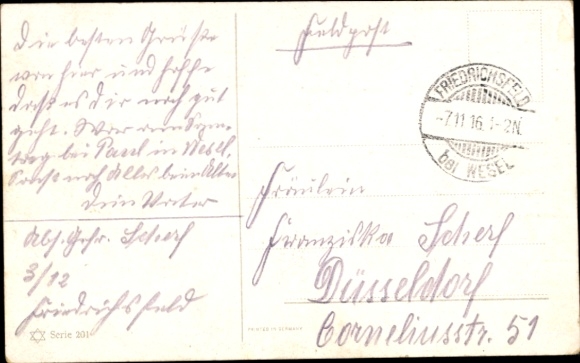 Die besten Grüße
von hier und hoffe
daß es Dir noch gut
geht. War am Sonn-
tag bei Paul in Wesel,
Sonst noch Alles beim Alten
Dein Vater
Abs. Gefr. Scherf
3/12
Friedrichsfeld
Serie 201
Feldpost
FRIEDRICHSFELD
-7.11.16. -2N.
bei WESEL
PRINTED IN GERMANY
Fräulein
Franziska Scherf
Düsseldorf
Corneliusstr. 51